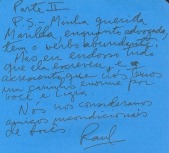 Parte II
P.S.- Minha querida
Marilda, enquanto advogada,
tem o verbo abundante.
Mas, eu endosso tudo
que ela escreveu, e
acrescento que nós temos
um carinho enorme por
você e Ligia.
Nós nos consideramos
amigos incondicionais
de vocês
Raul